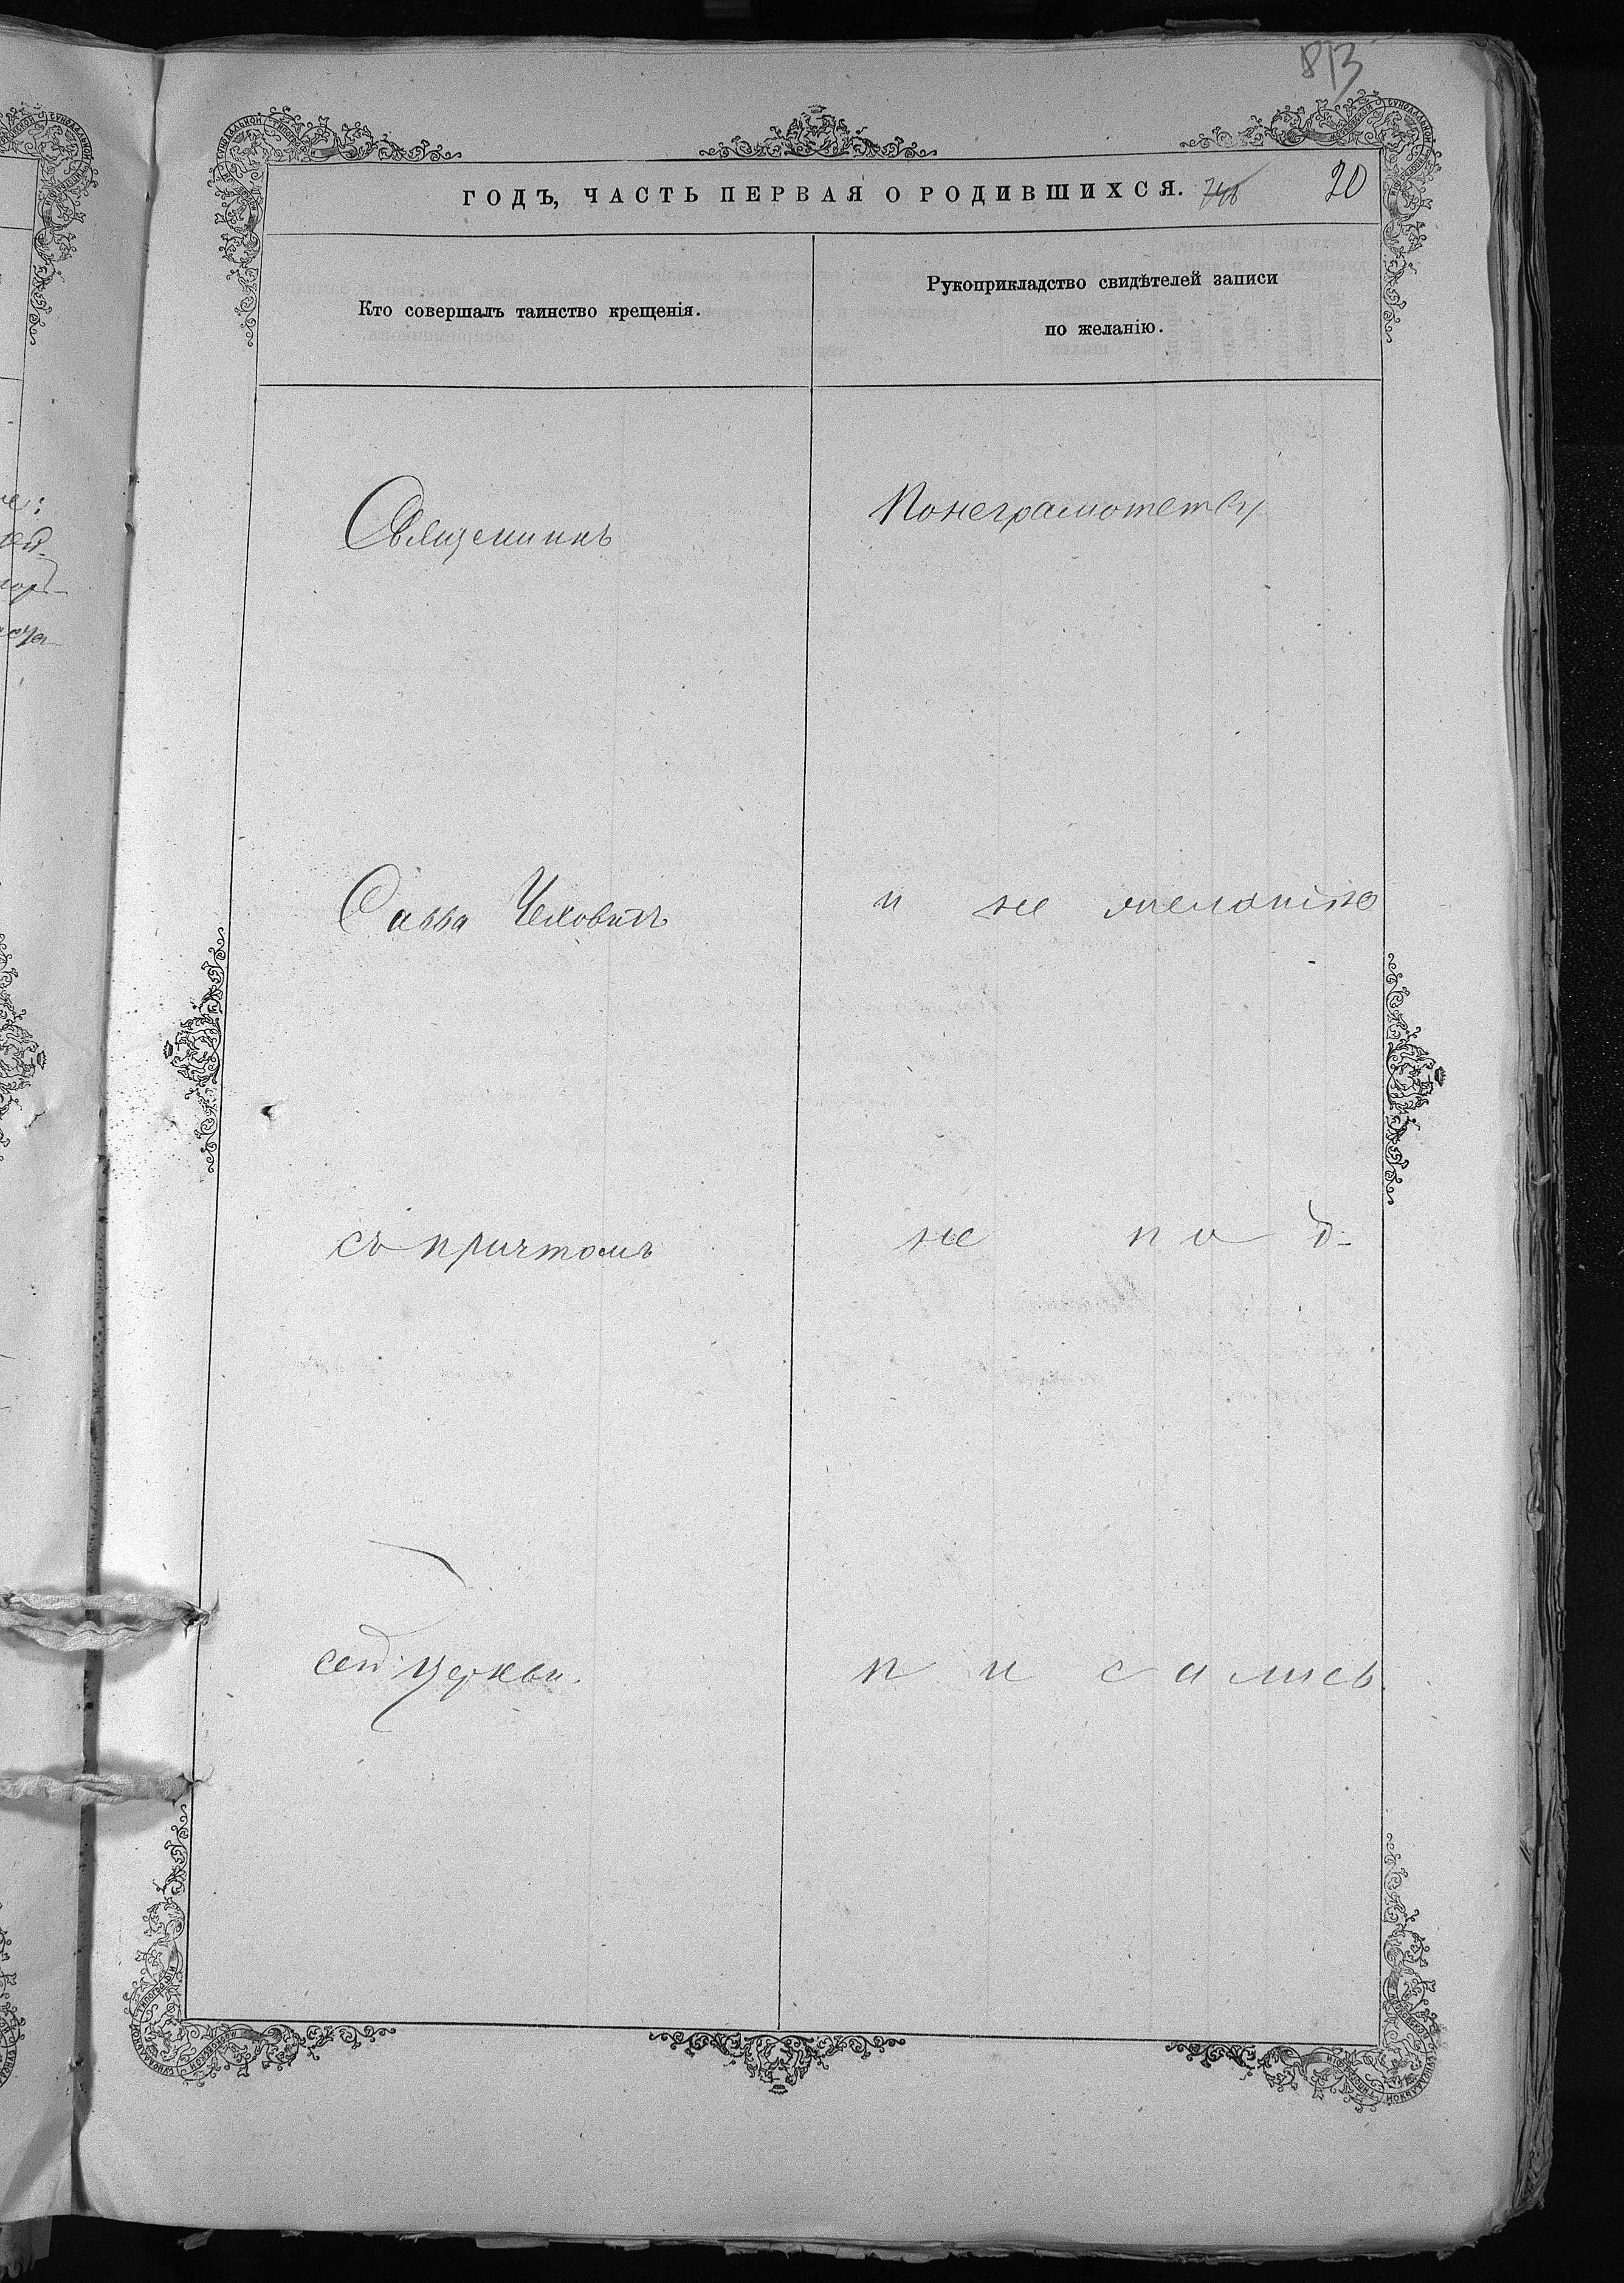 813
ГОДЪ, ЧАСТЬ ПЕРВАЯ О РОДИВШИХСЯ. 20
Кто совершалъ таинство крещенія.
Рукоприкладство свидѣтелей записи
по желанію.
Священникъ
Понеграмотству
Савва Чеховичъ
и не желанію
съ причтомъ
не под-
сей церкви.
писались